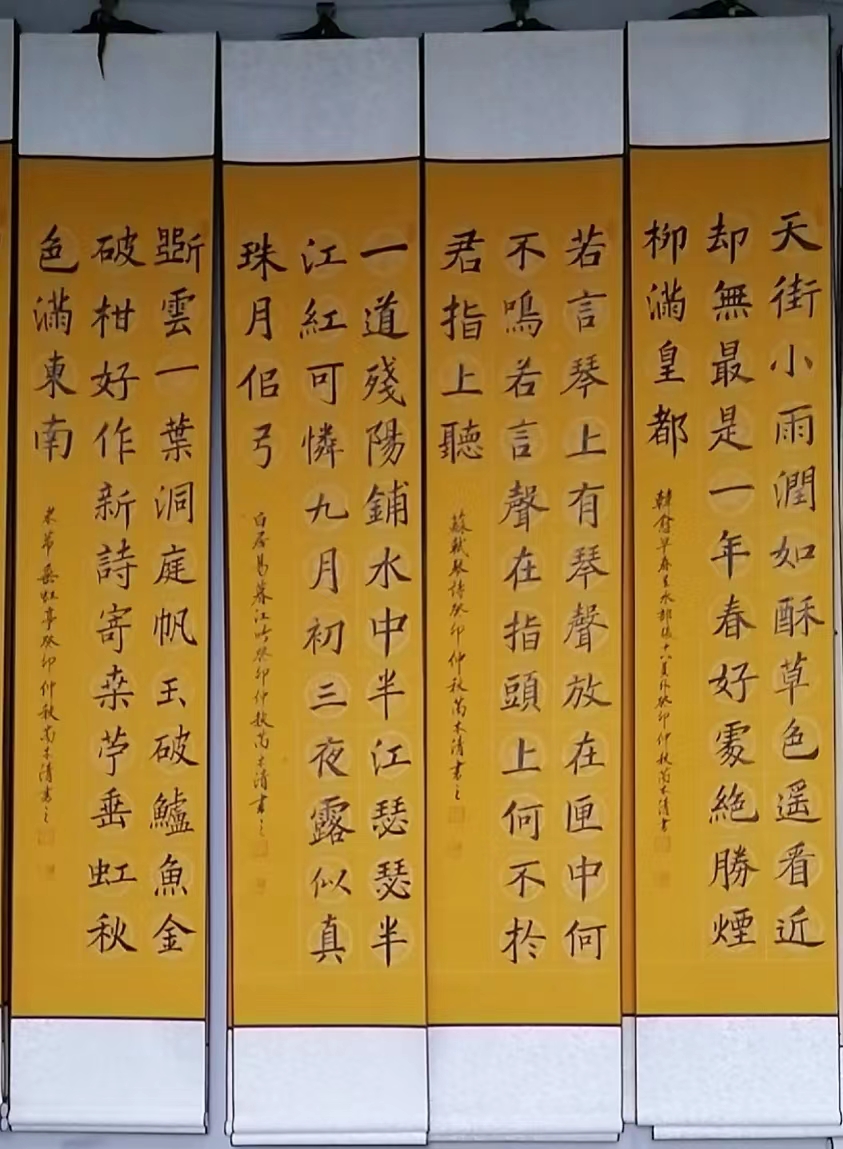 天街小雨潤如酥草色遥看近
却無最是一年春好處絶勝煙
柳滿皇都
韓愈早春呈水部張十八員外癸卯仲秋木清書
若言琴上有琴聲放在匣中何
不鳴若言聲在指頭上何不於
君指上聽
蘇軾琴詩癸卯仲秋木清書之
一道殘陽鋪水中半江瑟瑟半
江紅可憐九月初三夜露似真
珠月佀弓
白居易暮江吟癸卯仲秋木清書之
斷雲一葉洞庭帆玉破鱸魚金
破柑好作新詩寄桒苧垂虹秋
色滿東南
米芾垂虹亭癸卯仲秋木清書之